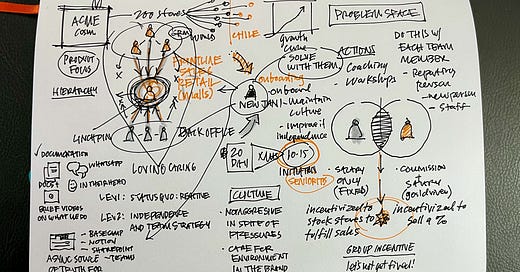 ACME
COSM
PRODUCT
FOCUS
HIERARCHY
200 STORES
CRM
CHILE
FRONTLINE
SALES
RETAIL
(MALLS)
LINCHPIN
BACK OFFICE
LOVING CARING
growth
curve
SOLVE
WITH THEM
onboarding
NEW JAN 1
- onboard
- Maintain
culture
- improve it
independence
$20
DAY
XMAS
10-15
INITIATES
SENIORITY
PROBLEM SPACE
ACTIONS
- Coaching
- Workshops
DO THIS W/
EACH TEAM
MEMBER
- Repeating
Version
- new person
- staff
SALARY
ONLY
FIXED
COMMISSION
SALARY
(goal driven)
incentivized to
stock stores to
fulfill sales
incentivized to
sell a %
GROUP INCENTIVE
let's not get fired!
CULTURE
- NONAGGRESSIVE
IN SPITE OF
PRESSURES
- CARE FOR
ENVIRONMENT
IN THE BRAND
✓ DOCUMENTATION
WHATSAPP
DOCS
IN THEIR HEAD
BRIEF VIDEOS
ON WHAT WE DO
- BASECAMP
- NOTION
- SHAREPOINT
- TEAMS
ASYNC SOURCE
OF TRUTH FOR
LEV1: STATUS QUO: REACTIVE
LEV2: INDEPENDENCE
AND TEAM STRATEGY